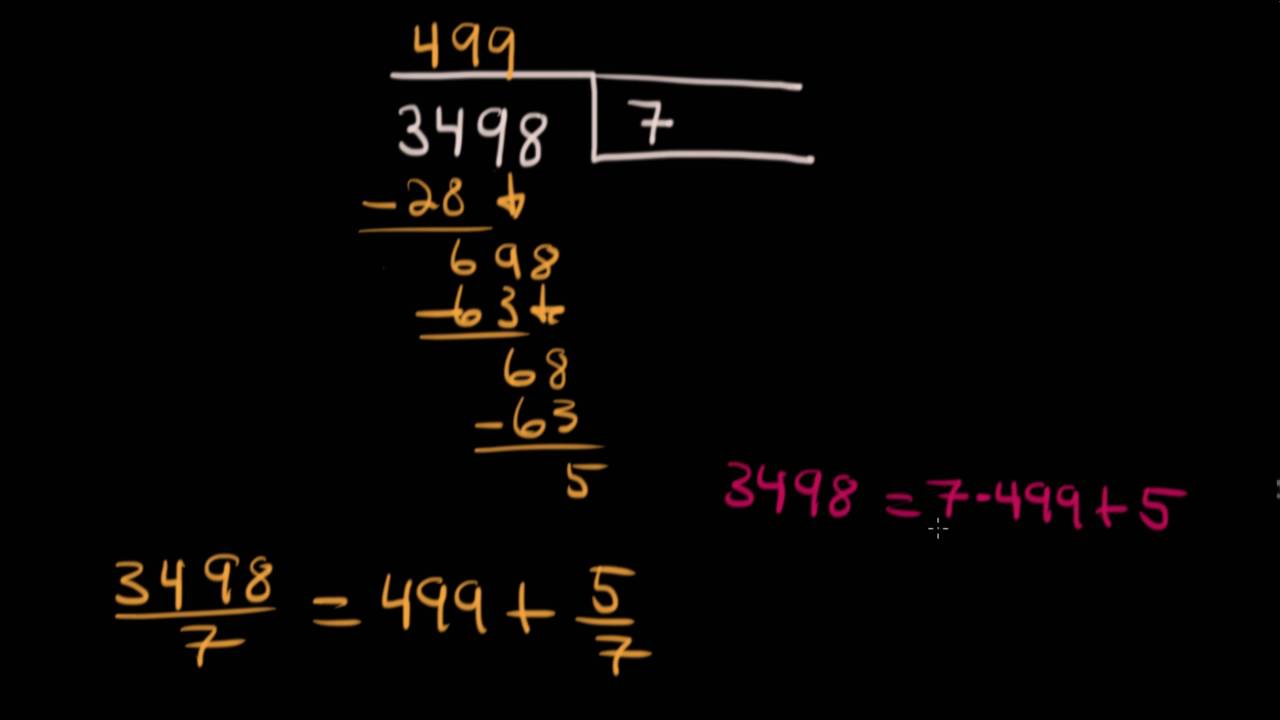 499
3498 7
-28
698
-63
68
-63
5
3498 = 7·499 + 5
3498/7 = 499 + 5/7